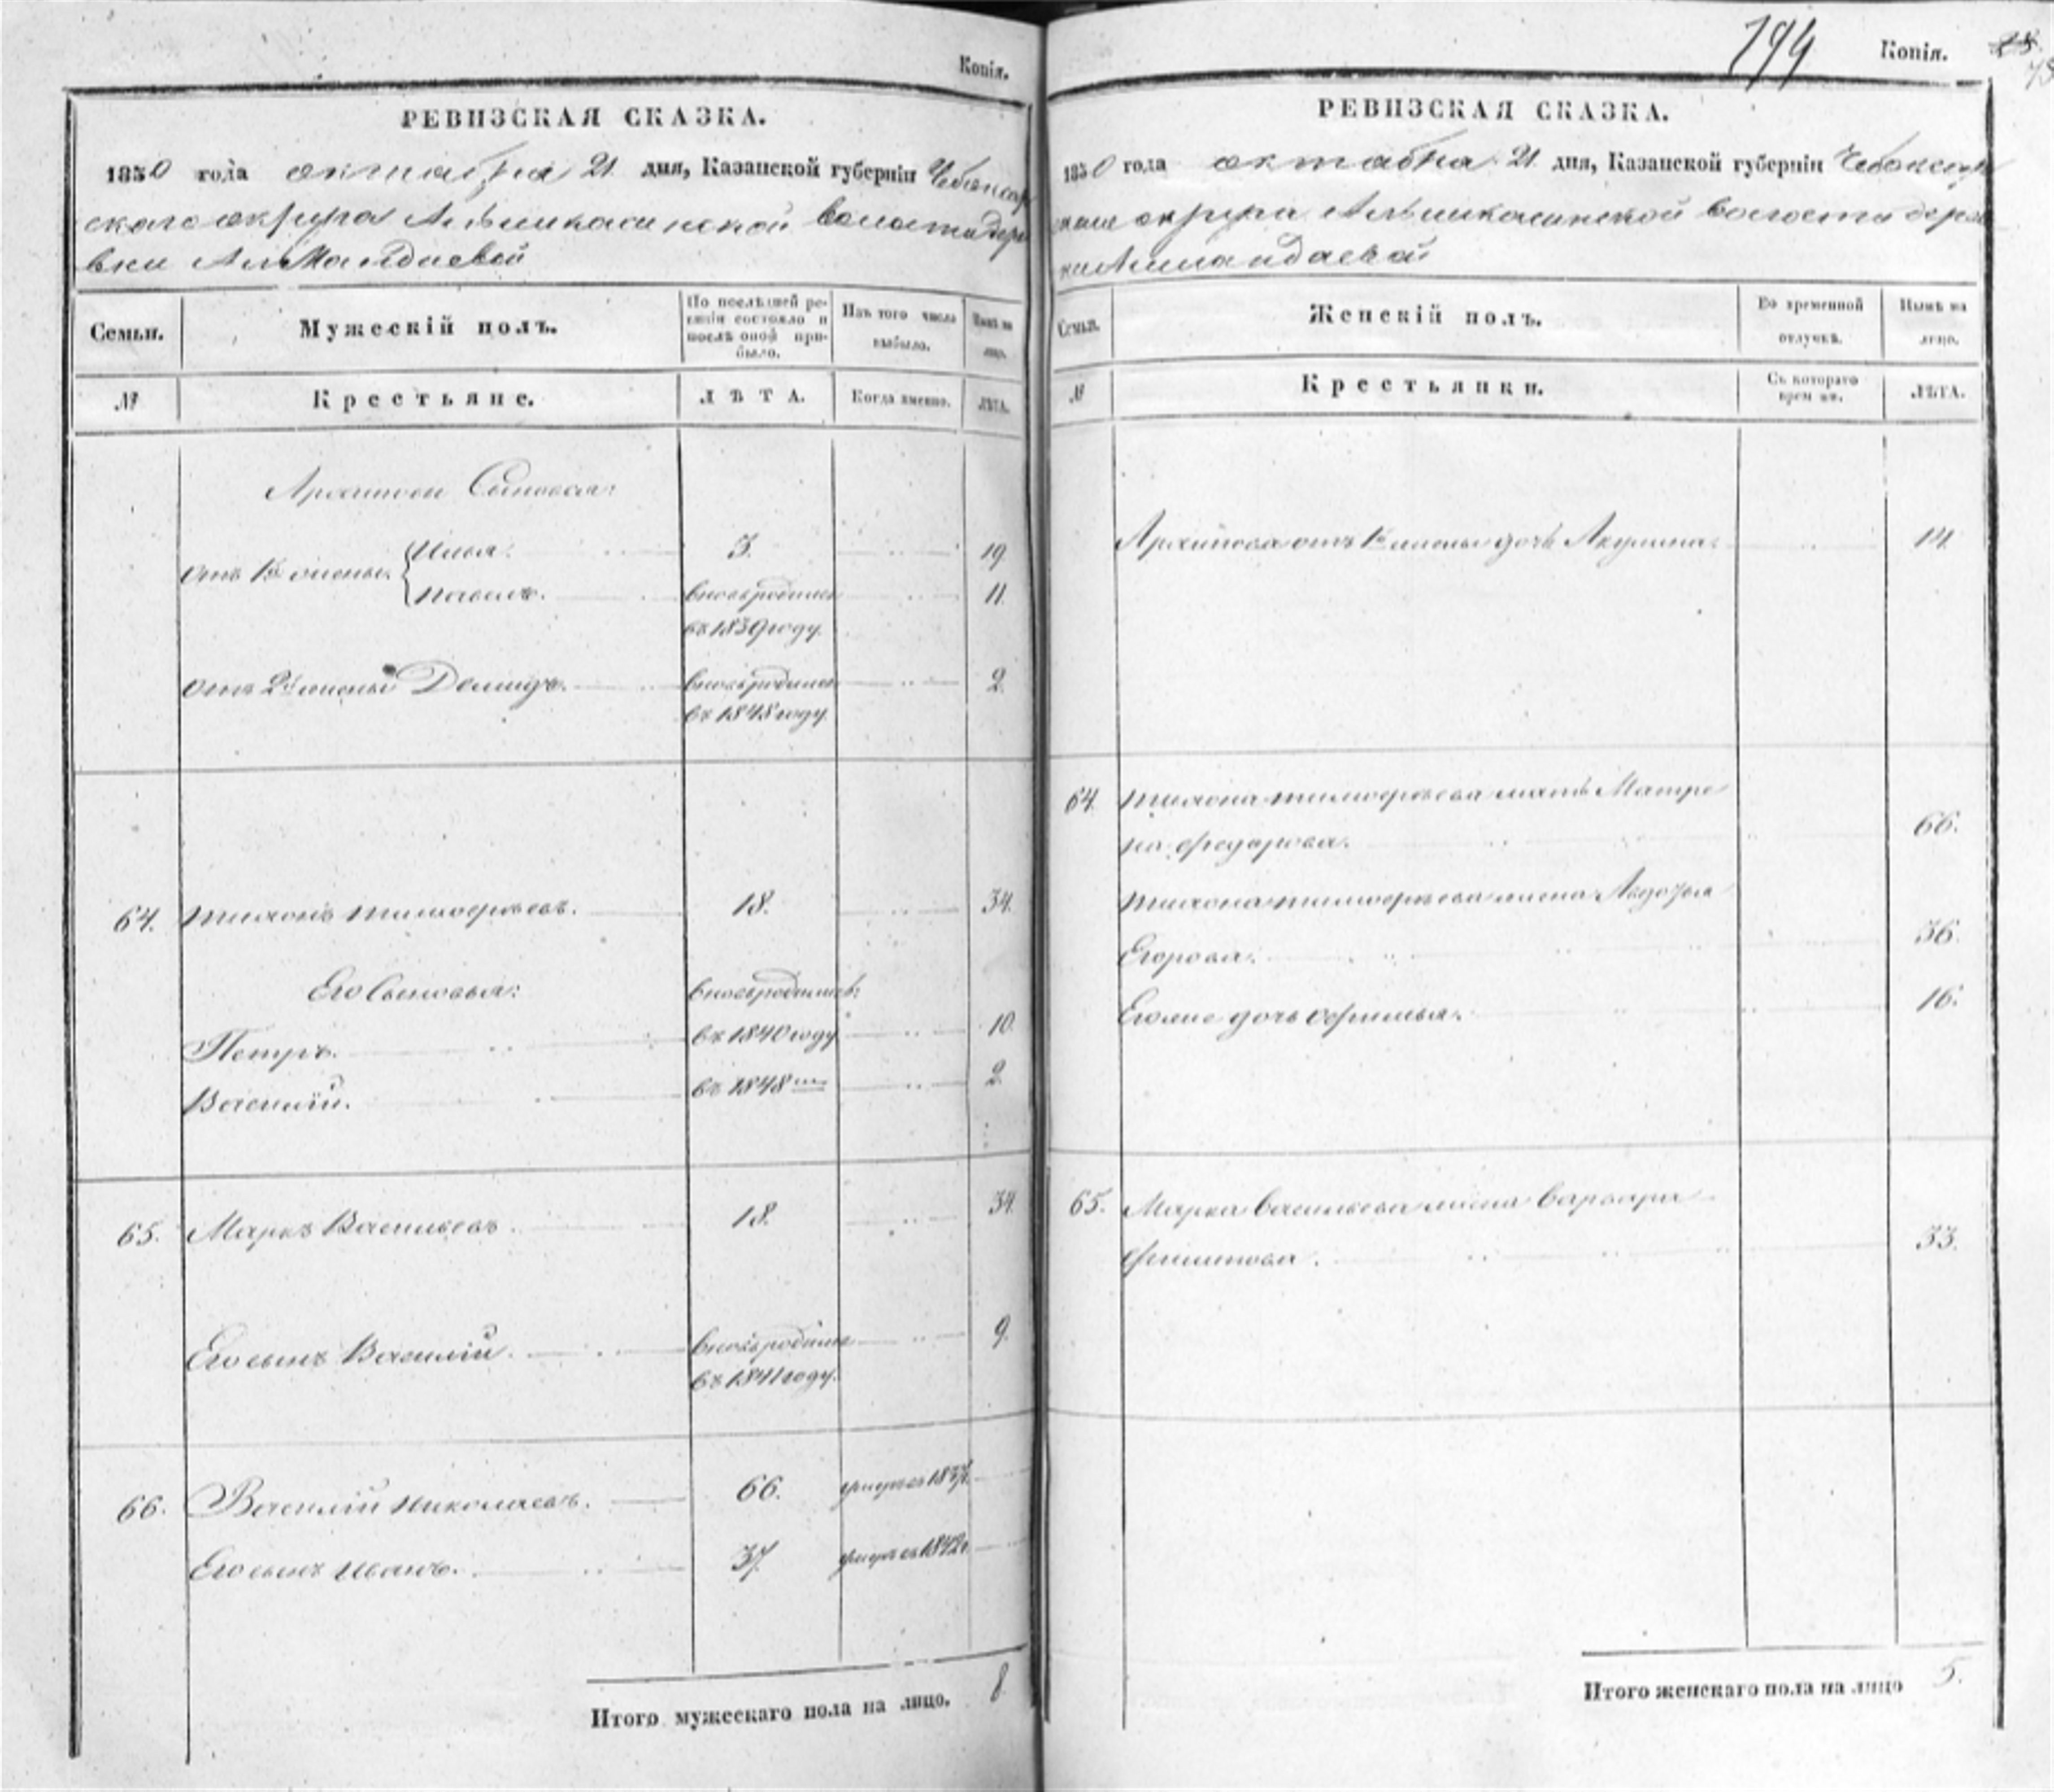 Копія.
РЕВИЗСКАЯ СКАЗКА.
1850 года октября 21 дня, Казанской губерніи Чебоксар
скаго округа Альшикасинской волости дере
вни Алмандаевой
Семьи.
Мужескій полъ.
По послѣдней ре-
визіи состояло и
послѣ оной при-
было.
Изъ того числа
выбыло.
Нынѣ на
лицо.
№
Крестьяне.
ЛѢТА.
Когда именно.
ЛѢТА.
Архипови Сыновья:
отъ 1й жены. Илья. 3. 19
Павелъ. вновьрожден 11.
въ 1839 году.
отъ 2й жены Демидъ. вновьрожден 2.
въ 1848 году.
64. Тихонъ Тимофѣевъ. 18. 34.
Его Сыновья: вновьродились:
Петръ. въ 1840 году 10.
Василій. въ 1848 2.
65. Маркъ Васильевъ. 18. 34
Его сынъ Василій. вновьродился 9.
въ 1841 году.
66. Василій Николаевъ. 66.
Его сынъ Иванъ. 37. 1842
Итого мужескаго пола на лицо. 8
194 Копія.
РЕВИЗСКАЯ СКАЗКА.
1850 года октября 21 дня, Казанской губерніи Чебоксар
скаго округа Альшикасинской волости дерев
ни Алмандаевой
Семьи.
Женскій полъ.
Во временной
отлучкѣ.
Нынѣ на
лицо.
№
Крестьянки.
Съ котораго
времени.
ЛѢТА.
Архипова отъ 1й жены дочь Акулина. 14.
64. Тихона Тимофѣева мать Матре
на Федарова. 66.
Тихона Тимофѣева жена Авдотья
Егорова. 36.
Еголие дочь Офимья. 16.
65. Марка Васильева жена Варвара
Филипова. 33.
Итого женскаго пола на лицо 5.